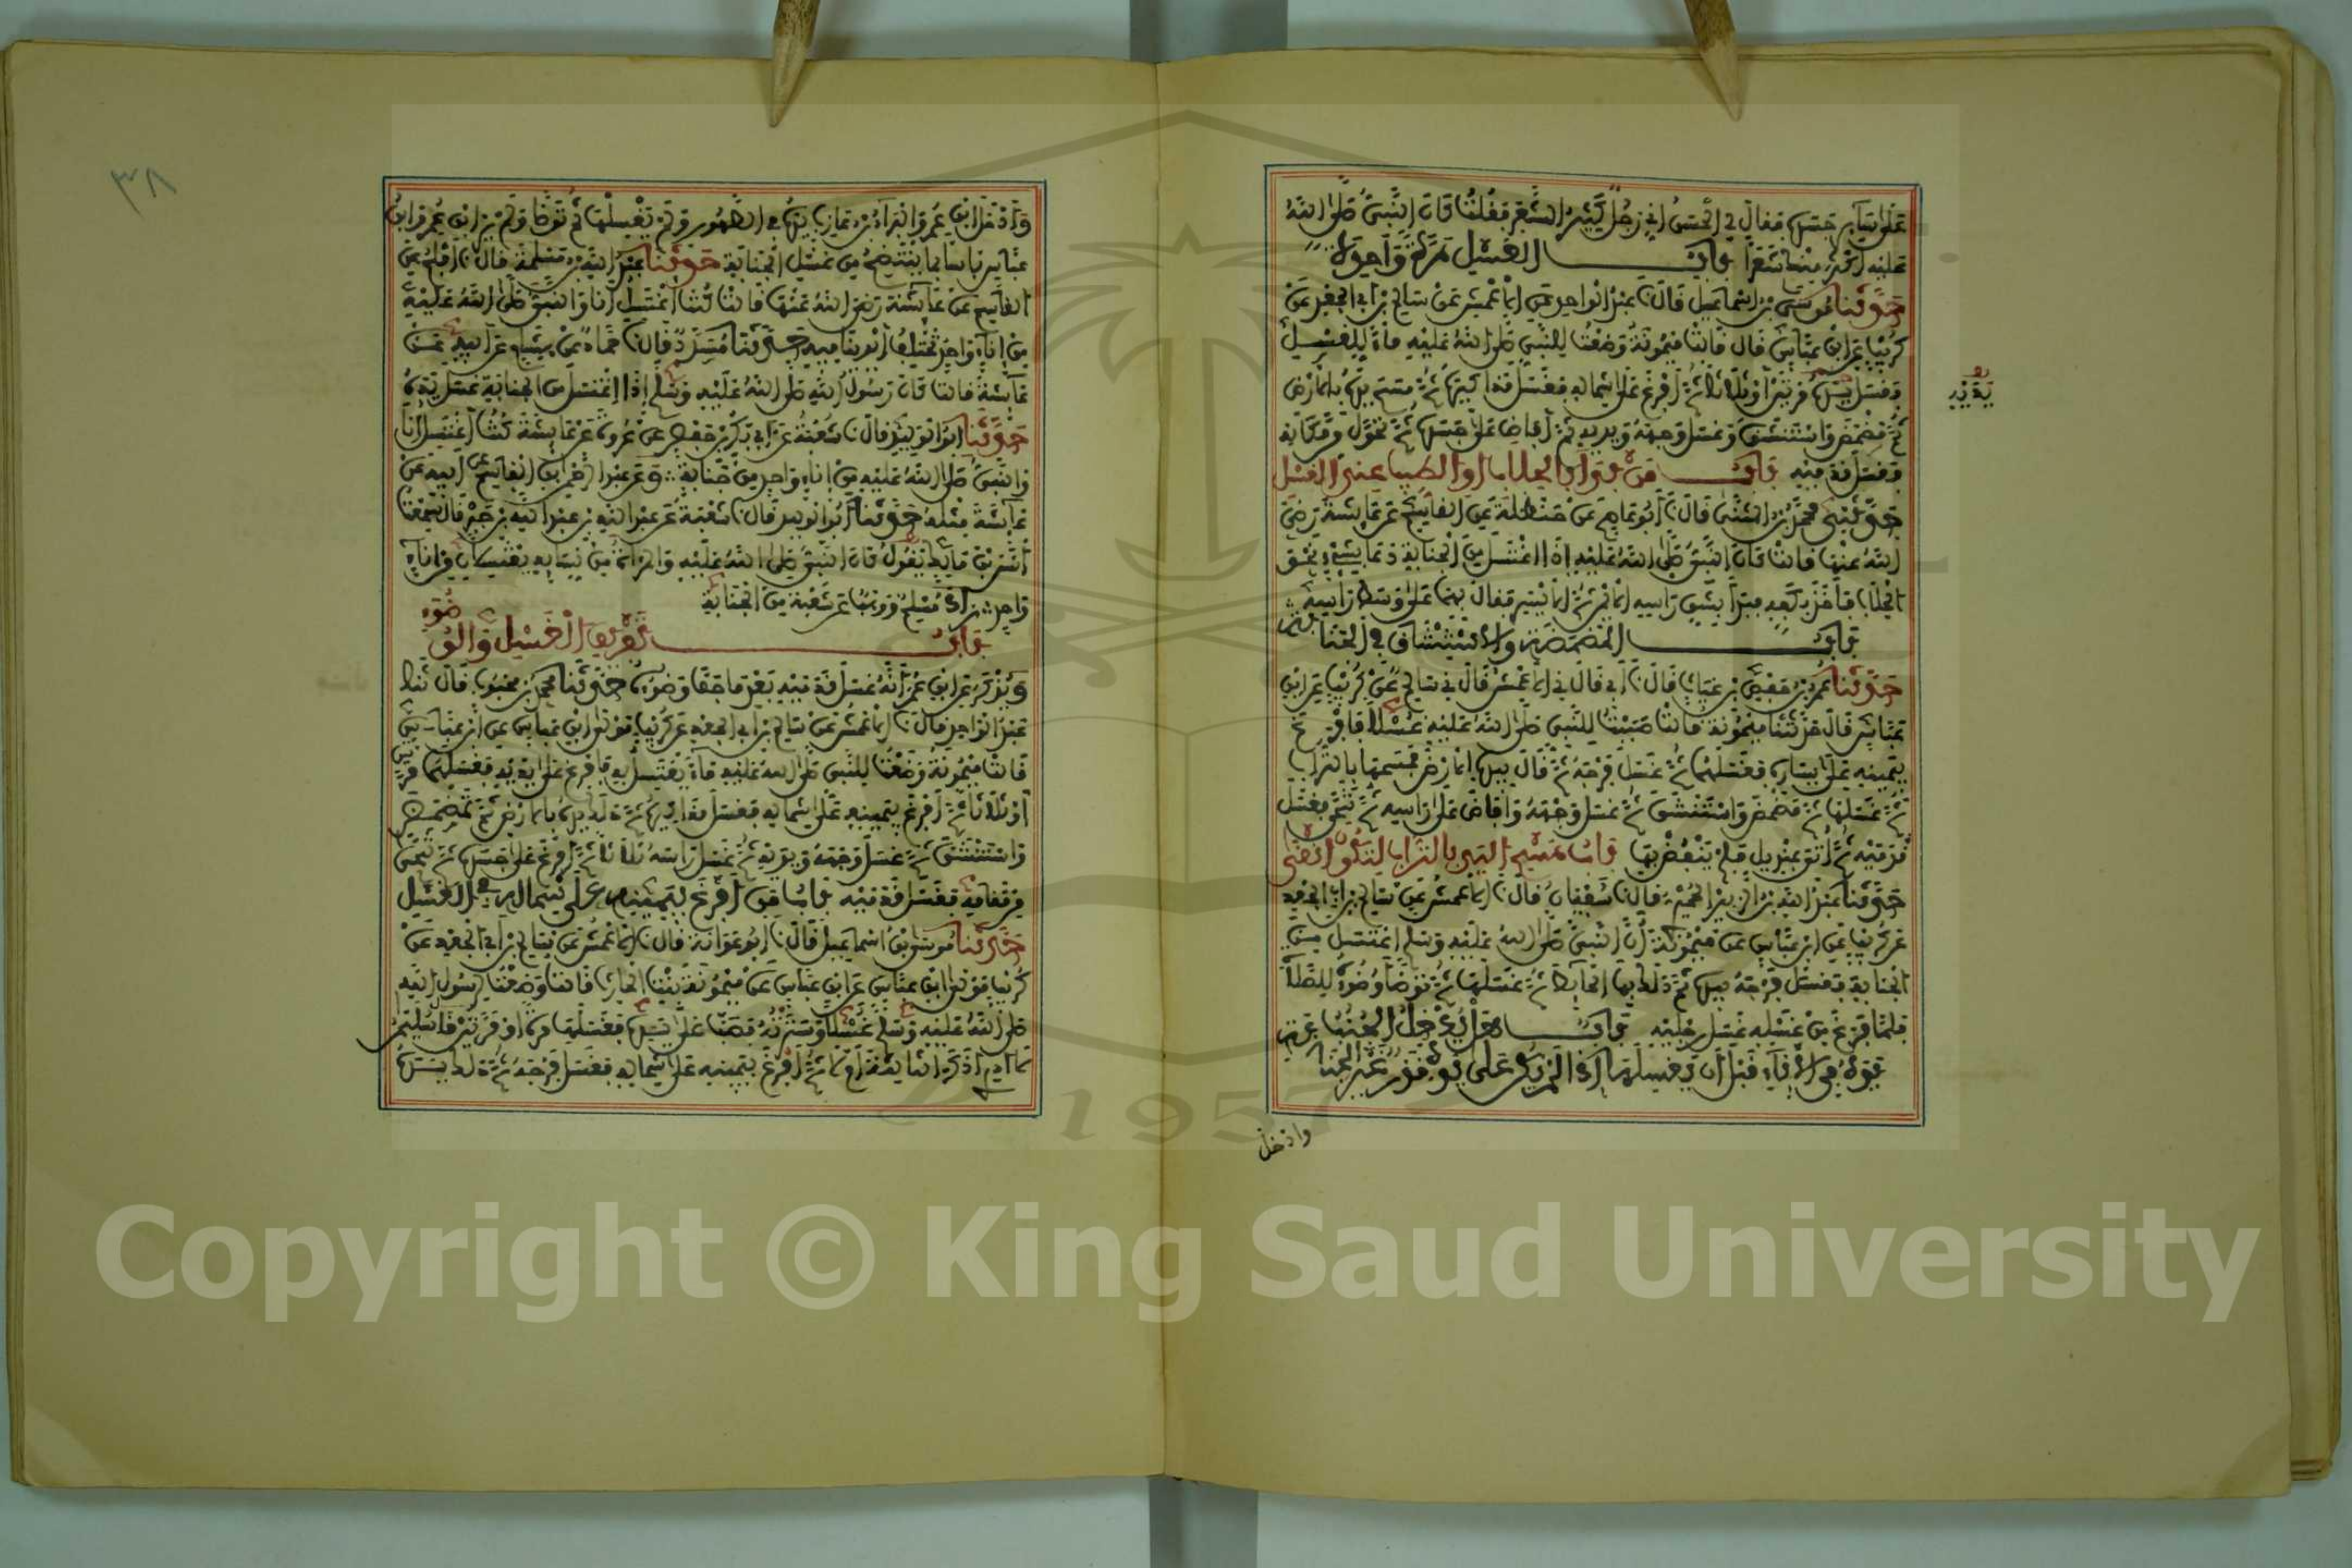 على سائر جسده فقال لي الحسن إني رجل كثير الشعر فقلت كان النبي صلى الله
عليه أكثر منك شعرا باب الغسل مرة واحدة
حدثنا موسى بن إسماعيل قال نا عبد الواحد عن الأعمش عن سالم بن أبي الجعد عن
كريب عن ابن عباس قال قالت ميمونة وضعت للنبي صلى الله عليه ماء للغسل
فغسل يده مرتين أو ثلاثا ثم أفرغ على شماله فغسل مذاكيره ثم مسح يده بالأرض
يديه
ثم مضمض واستنشق وغسل وجهه ويديه ثم أفاض على جسده ثم تحول من مكانه
فغسل قدميه باب من بدأ بالحلاب أو الطيب عند الغسل
حدثني محمد بن المثنى قال نا أبو عاصم عن حنظلة عن القاسم عن عائشة رضي
الله عنها قالت كان النبي صلى الله عليه إذا اغتسل من الجنابة دعا بشيء نحو
الحلاب فأخذ بكفه فبدأ بشق رأسه الأيمن ثم الأيسر فقال بهما على وسط رأسه
باب المضمضة والاستنشاق في الجنابة
حدثنا عمر بن حفص بن غياث قال نا أبي قال نا الأعمش قال ني سالم عن كريب عن ابن
عباس قال حدثتنا ميمونة قالت صببت للنبي صلى الله عليه غسلا فأفرغ
بيمينه على يساره فغسلهما ثم غسل فرجه ثم قال بيده الأرض فمسحها بالتراب
ثم غسلها ثم مضمض واستنشق ثم غسل وجهه وأفاض على رأسه ثم تنحى فغسل
قدميه ثم أتي بمنديل فلم ينفض بها باب مسح اليد بالتراب لتكون أنقى
حدثنا عبد الله بن الزبير الحميدي قال نا سفيان قال نا الأعمش عن سالم بن أبي الجعد
عن كريب عن ابن عباس عن ميمونة أن النبي صلى الله عليه وسلم اغتسل من
الجنابة فغسل فرجه بيده ثم دلك بها الحائط ثم غسلها ثم توضأ وضوءه للصلاة
فلما فرغ من غسله غسل رجليه باب هل يدخل الجنب يده
في الإناء قبل أن يغسلها إذا لم يكن على يده قذر غير الجنابة
وأدخل
وأدخل ابن عمر والبراء بن عازب يده في الطهور ولم يغسلها ثم توضأ ولم ير ابن عمر وابن
عباس بأسا بما ينتضح من غسل الجنابة حدثنا عبد الله بن مسلمة قال نا أفلح عن
القاسم عن عائشة رضي الله عنها قالت كنت أغتسل أنا والنبي صلى الله عليه
من إناء واحد تختلف أيدينا فيه حدثنا مسدد قال نا حماد عن هشام عن أبيه عن
عائشة قالت كان رسول الله صلى الله عليه وسلم إذا اغتسل من الجنابة غسل يده
حدثنا أبو الوليد قال نا شعبة عن أبي بكر بن حفص عن عروة عن عائشة كنت أغتسل أنا
والنبي صلى الله عليه من إناء واحد من جنابة وعن عبد الرحمن بن القاسم عن أبيه عن
عائشة مثله حدثنا أبو الوليد قال نا شعبة عن عبد الله بن عبد الله بن جبر قال سمعت
أنس بن مالك يقول كان النبي صلى الله عليه والمرأة من نسائه يغتسلان من إناء
واحد زاد مسلم ووهب عن شعبة من الجنابة
باب تفريق الغسل والوضوء
ويذكر عن ابن عمر أنه غسل قدميه بعدما جف وضوءه حدثنا محمد بن محبوب قال نا
عبد الواحد قال نا الأعمش عن سالم بن أبي الجعد عن كريب مولى ابن عباس عن ابن عباس
قالت ميمونة وضعت للنبي صلى الله عليه ماء يغتسل به فأفرغ على يديه فغسلهما مرتين
أو ثلاثا ثم أفرغ بيمينه على شماله فغسل مذاكيره ثم دلك يده بالأرض ثم تمضمض
واستنشق ثم غسل وجهه ويديه ثم غسل رأسه ثلاثا ثم أفرغ على جسده ثم تنحى
من مقامه فغسل قدميه باب من أفرغ بيمينه على شماله في الغسل
حدثنا موسى بن إسماعيل قال نا أبو عوانة قال نا الأعمش عن سالم بن أبي الجعد عن
كريب مولى ابن عباس عن ابن عباس عن ميمونة بنت الحارث قالت وضعت لرسول الله
صلى الله عليه وسلم غسلا وسترته فصب على يده فغسلها مرة أو مرتين قال سليمان
لا أدري أذكر الثالثة أم لا ثم أفرغ بيمينه على شماله فغسل فرجه ثم دلك يده
٣٨
Copyright © King Saud University
1957